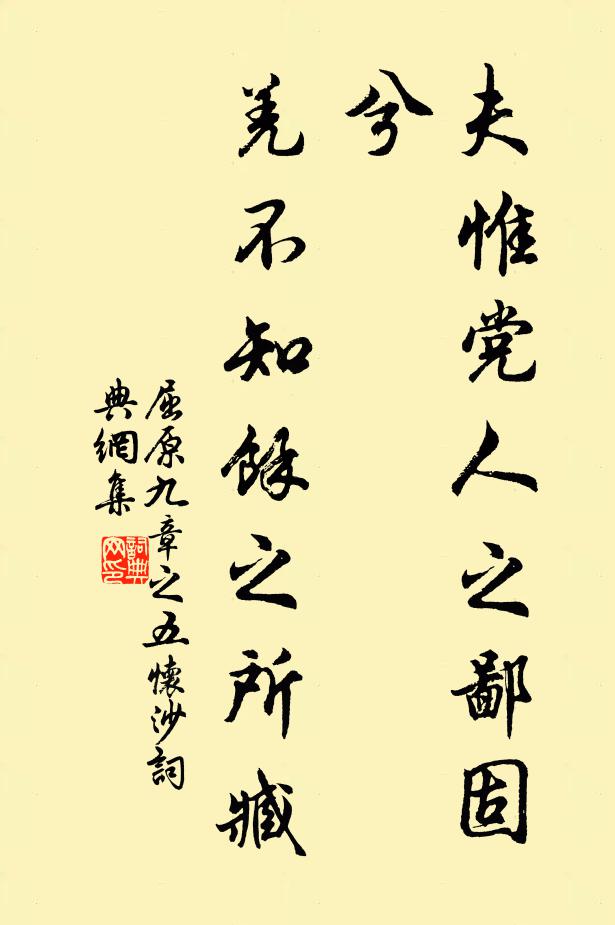 夫惟党人之鄙固
兮
羌不知餘之所臧
屈原九章之五懷沙詞
典網集
詞典
网印